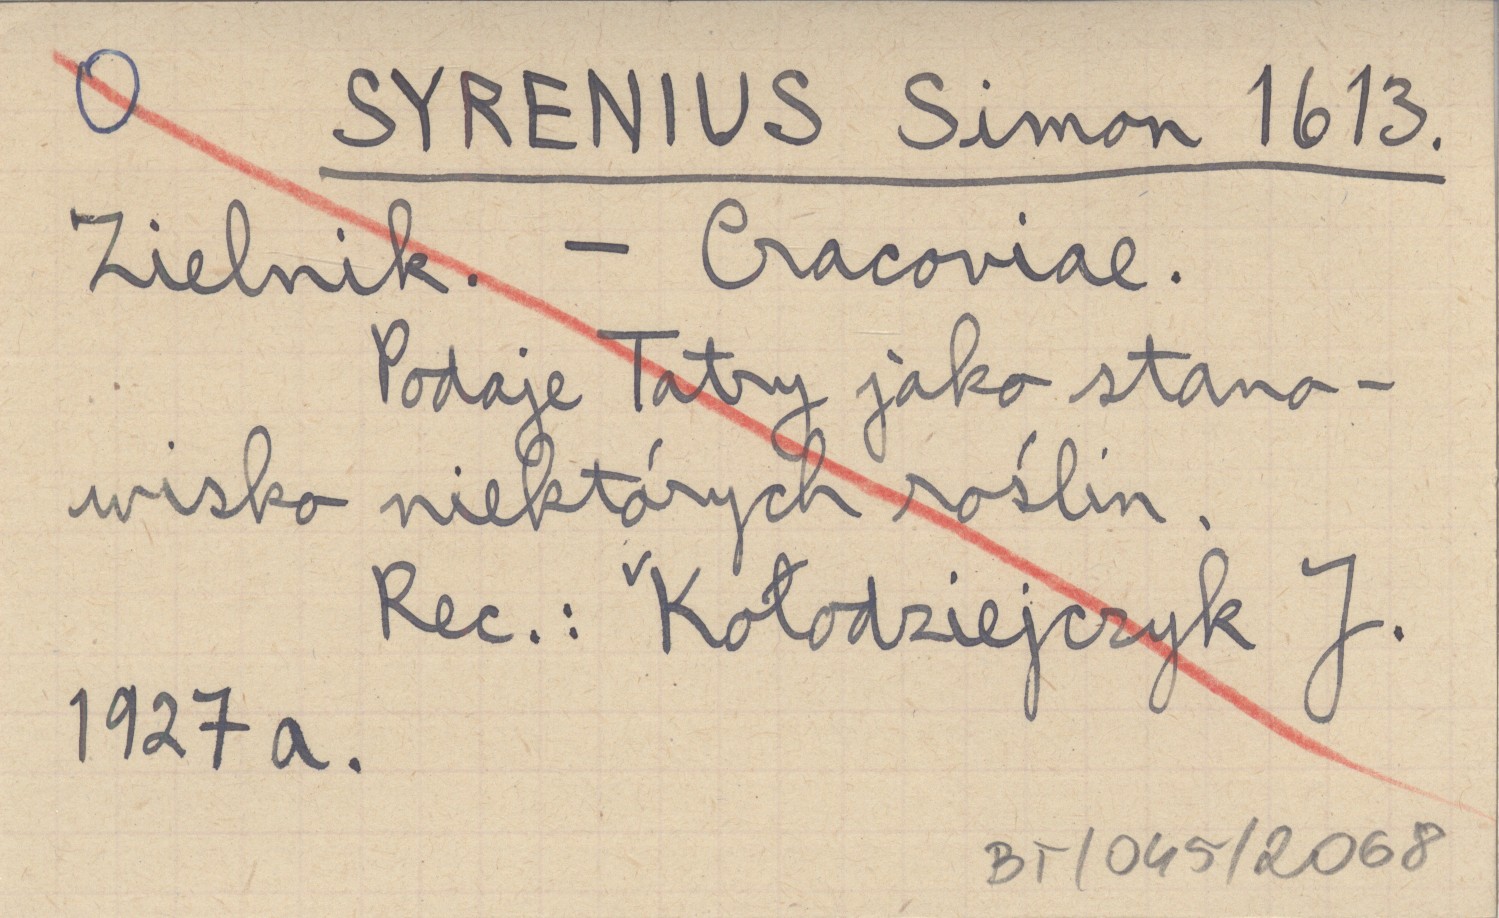 O SYRENIUS Simon 1613.
Zielnik. – Cracoviae.
Podaje Tatry jako stano-
wisko niektórych roślin.
Rec.: ˇKołodziejczyk J.
1927a.
BT/045/2068